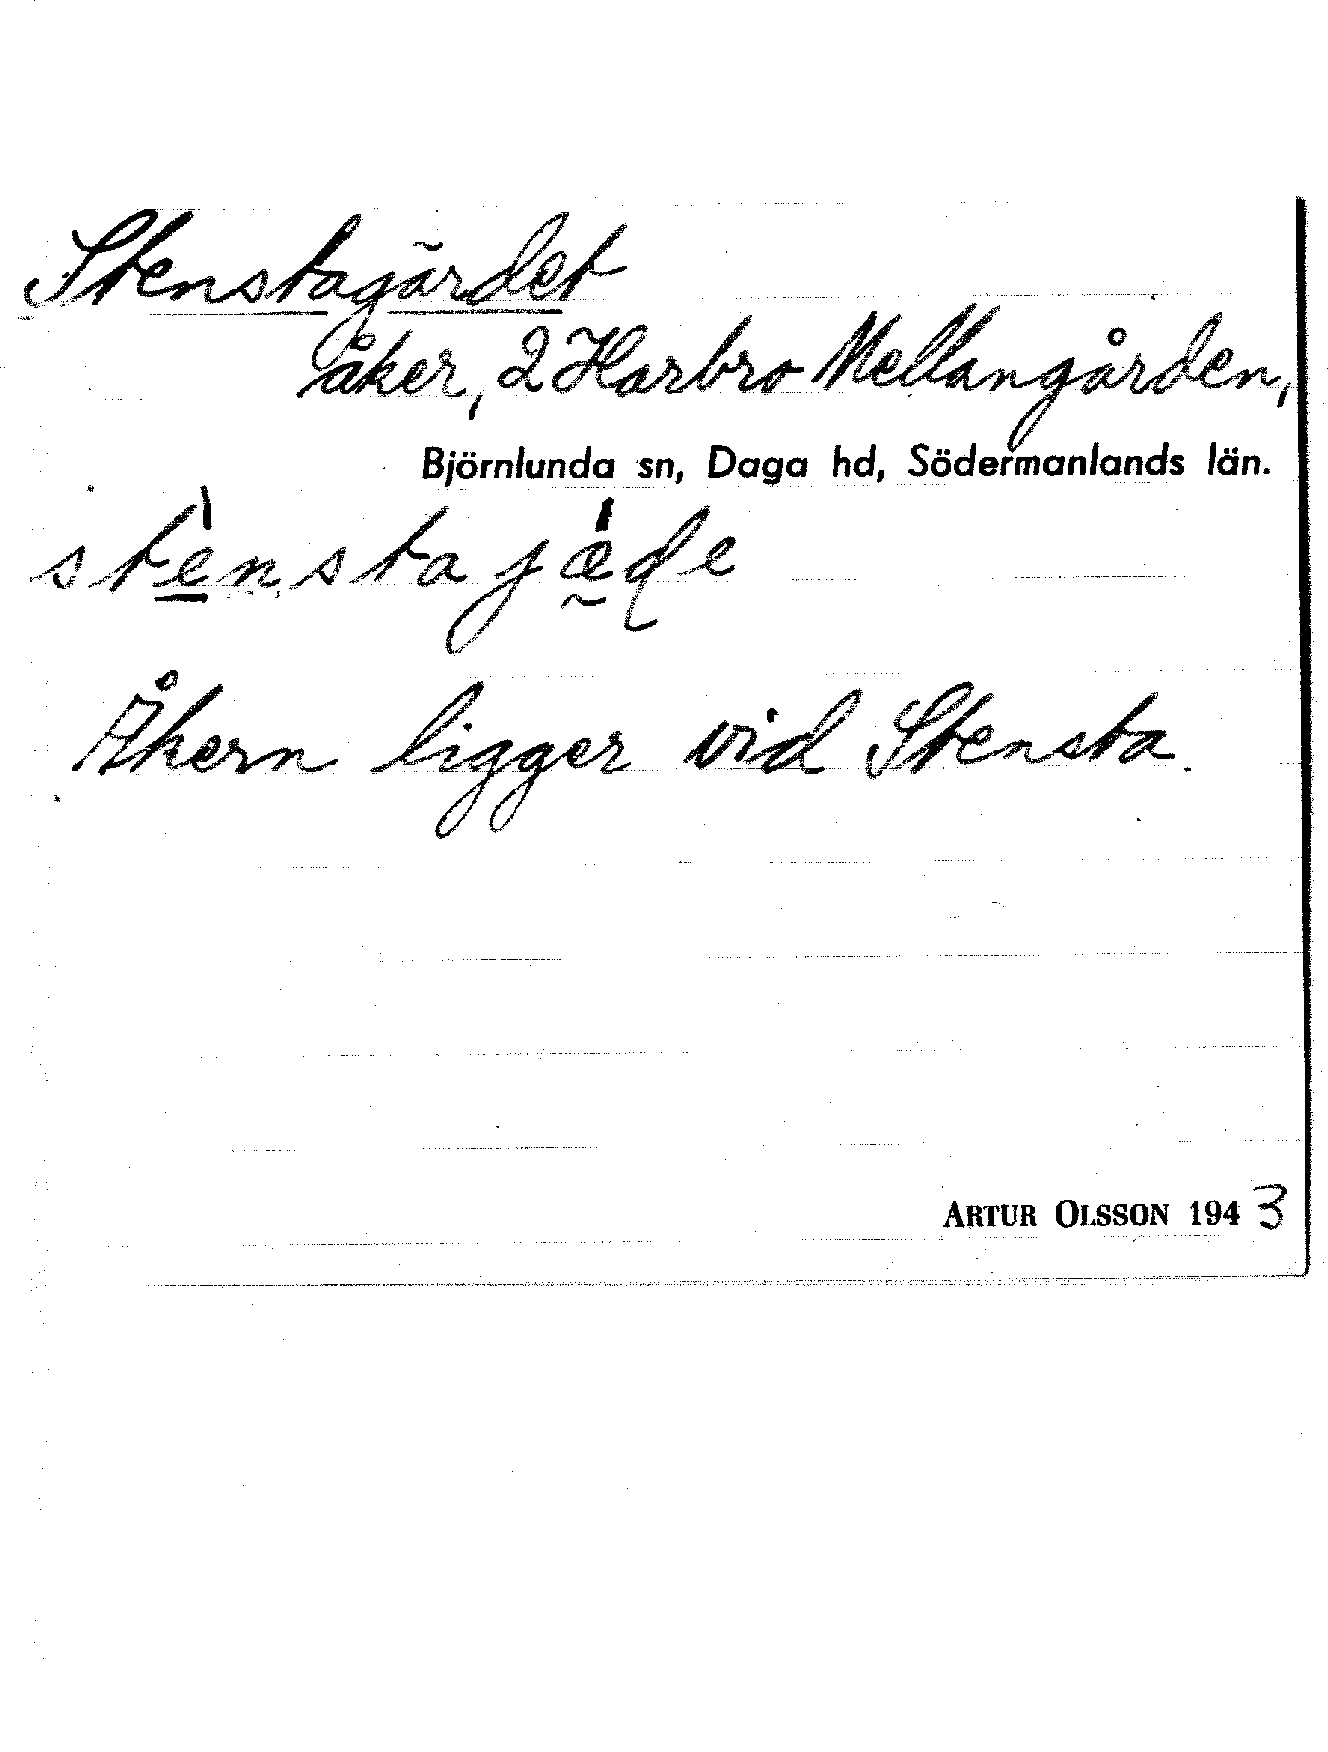 Stenstagärdet
åker, 2 Harbro Mellangården,
Björnlunda sn, Daga hd, Södermanlands län.
stènstajæ̀de
Åkern ligger vid Stensta.
ARTUR OLSSON 1943